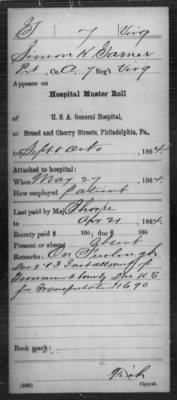 G 7 Virg
Simeon H. Garner
Pvt., Co. A, 7 Reg't Virg
Appears on
Hospital Muster Roll
of
U. S. A. General Hospital,
at Broad and Cherry Streets, Philadelphia, Pa.,
Sept & Oct, 1864.
Attached to hospital:
When May 27, 186
How employed Patient
Last paid by Maj. Thorpe
to Apr. 21, 1864.
Bounty paid $ 100; due $ 100
Present or absent Absent
Remarks: On Furlough
of
Government bounty Due U S
for Transportation $16 90
Book mark:
Copyist.